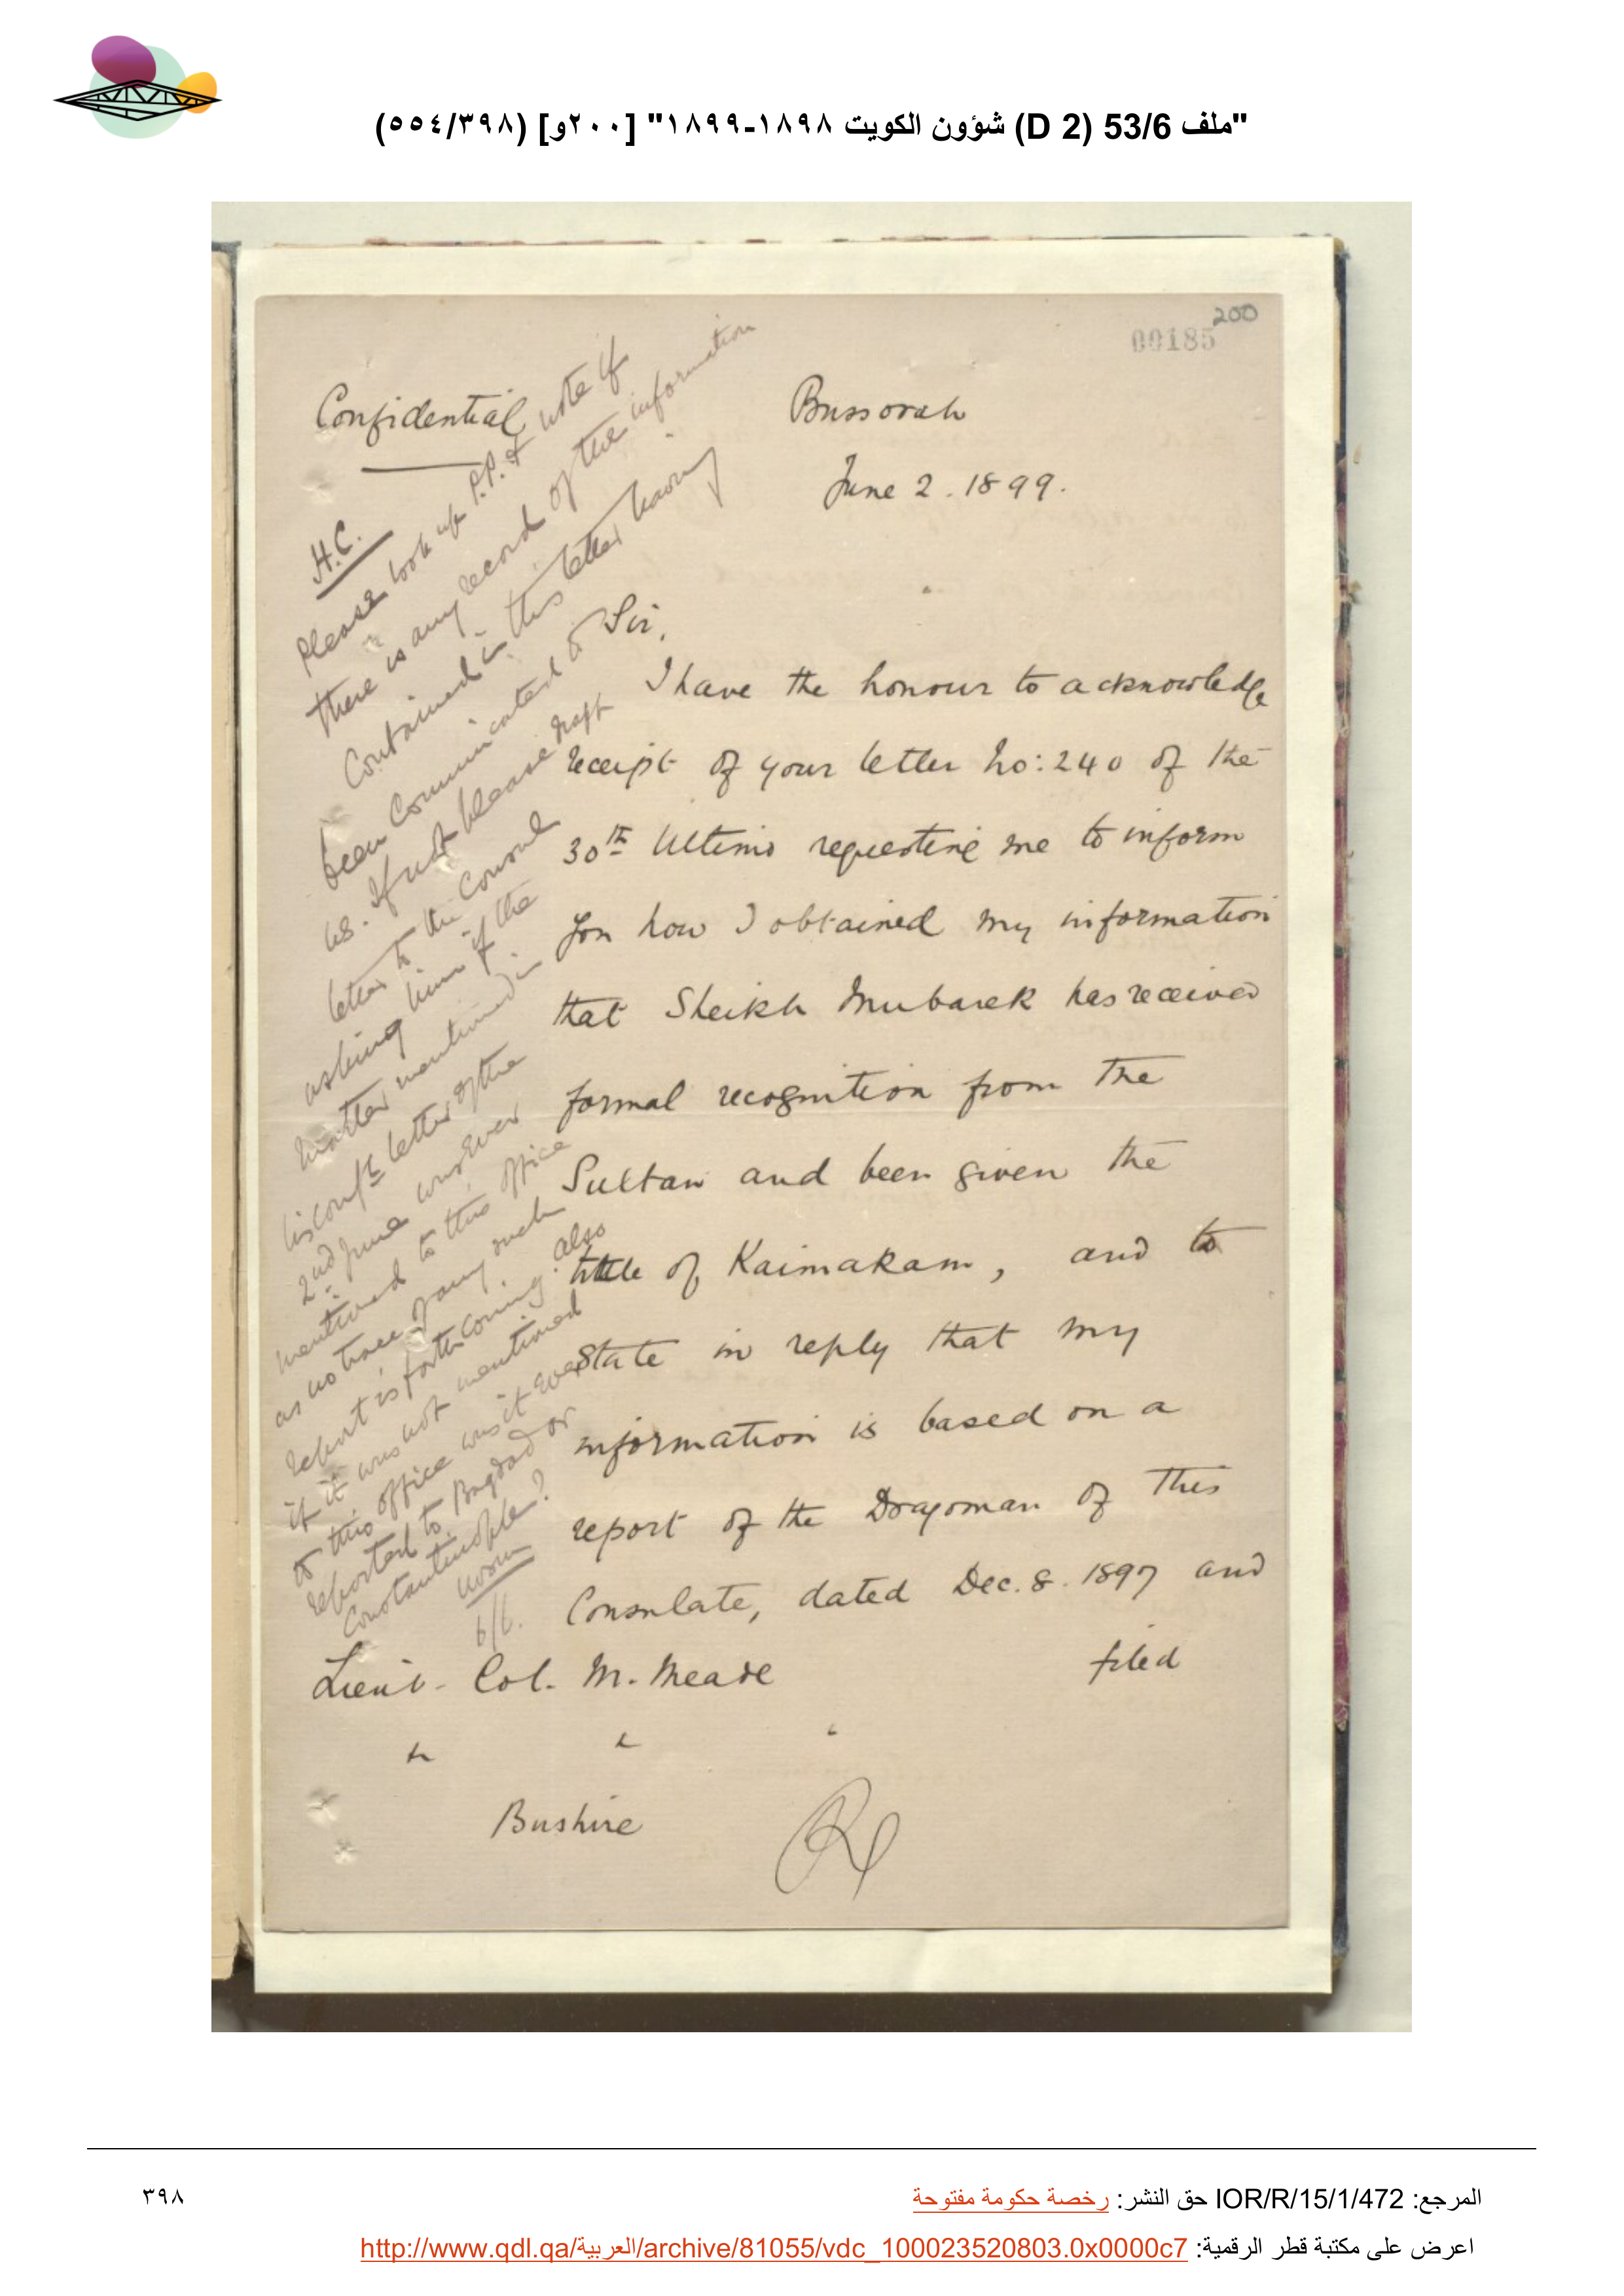 "ملف 53/6 (D 2) شؤون الكويت ١٨٩٨-١٨٩٩" [٢٠٠و] (٥٥٤/٣٩٨)
200
00185
Confidential
Bussorah
June 2. 1899.
H.C.
Please look up P.P. & note if
there is any record of the information
contained in this letter having
been communicated to
us. If not please draft
letter to the Consul
asking him if the
matter mentioned in
his conf<sup>l</sup> letter of the
2nd June was ever
mentioned to this office
as no trace of any such
report is forthcoming. also
if it was not mentioned
to this office was it ever
reported to Bagdad or
Constantinople?
6/6.
Sir,
I have the honour to acknowledge
receipt of your letter No: 240 of the
30th Ultimo requesting me to inform
you how I obtained my information
that Sheikh Mubarek has received
formal recognition from the
Sultan and been given the
title of Kaimakam, and to
state in reply that my
information is based on a
report of the Dragoman of this
Consulate, dated Dec. 8. 1897 and
filed
Lieut- Col. M. Meade
" " "
Bushire
المرجع: IOR/R/15/1/472 حق النشر: رخصة حكومة مفتوحة
٣٩٨
اعرض على مكتبة قطر الرقمية: http://www.qdl.qa/العربية/archive/81055/vdc_100023520803.0x0000c7